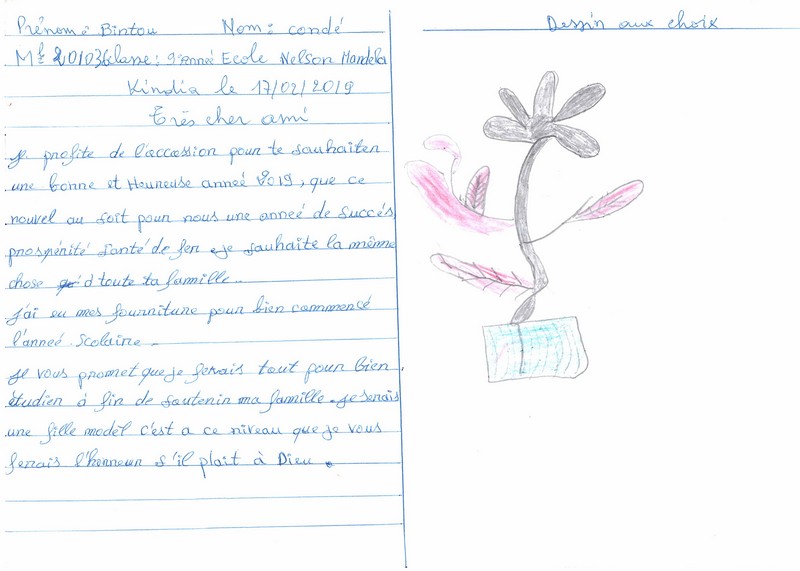 Prénom: Bintou Nom: condé
Mle 201036 classe: 9e Anneé Ecole Nelson Mandela
Kindia le 17/02/2019
Très cher ami
Je profite de l'accassion pour te sauhaiter
une bonne et Heureuse anneé 2019, que ce
nouvel au soit pour nous une anneé de succés,
prospérité santé de fer. je sauhaite la même
chose d toute ta famille..
J'ai eu mes fourniture pour bien cammencé
l'anneé. Scolaire.
Je vous promet que je ferais tout pour bien
étudier à fin de soutenir ma famille. je serais
une fille modèl c'est a ce niveau que je vous
ferais l'honneur s'il plait à Dieu.
Dessin aux choix